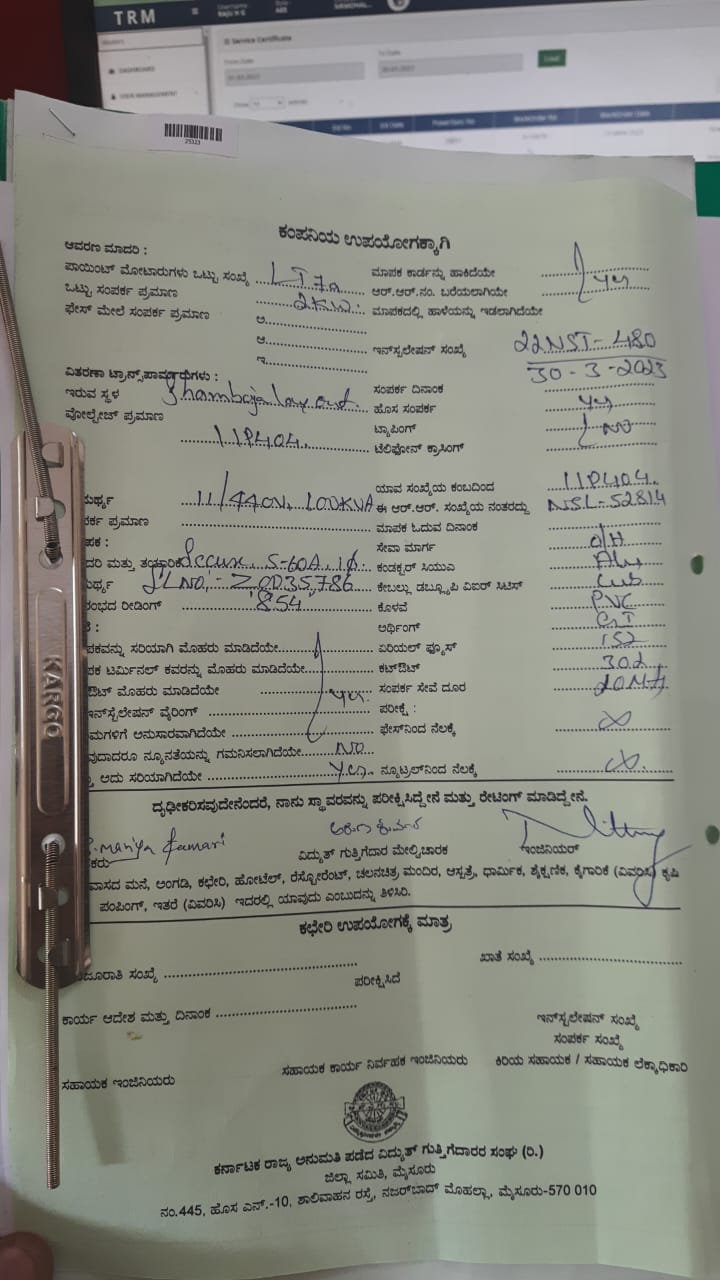 TRM
Service Certificate
From Date
To Date
DASHBOARD
USER MANAGEMENT
25323
ಕಂಪನಿಯ ಉಪಯೋಗಕ್ಕಾಗಿ
ಆವರಣ ಮಾದರಿ :
ಪಾಯಿಂಟ್ ಮೋಟಾರುಗಳು ಒಟ್ಟು ಸಂಖ್ಯೆ LT7a ಮಾಪಕ ಕಾರ್ಡನ್ನು ಹಾಕಿದೆಯೇ
ಒಟ್ಟು ಸಂಪರ್ಕ ಪ್ರಮಾಣ 2KW. ಆರ್.ಆರ್.ನಂ. ಬರೆಯಲಾಗಿಯೇ yes
ಫೇಸ್ ಮೇಲೆ ಸಂಪರ್ಕ ಪ್ರಮಾಣ ಅ. ಮಾಪಕದಲ್ಲಿ ಹಾಳೆಯನ್ನು ಇಡಲಾಗಿದೆಯೇ
ಆ.
ಇ. ಇನ್‌ಸ್ಟಲೇಷನ್ ಸಂಖ್ಯೆ 22NST-480
ವಿತರಣಾ ಟ್ರಾನ್ಸ್‌ಪಾರ್ಮರುಗಳು : 30-3-2023
ಇರುವ ಸ್ಥಳ ಸಂಪರ್ಕ ದಿನಾಂಕ
ವೋಲ್ಟೇಜ್ ಪ್ರಮಾಣ ಹೊಸ ಸಂಪರ್ಕ yes
11P404. ಟ್ಯಾಪಿಂಗ್ NO
ಟೆಲಿಫೋನ್ ಕ್ರಾಸಿಂಗ್
ಯಾವ ಸಂಖ್ಯೆಯ ಕಂಬದಿಂದ 11P404.
ಮರ್ಥ್ಯ 11/440V, 100KVA ಈ ಆರ್.ಆರ್. ಸಂಖ್ಯೆಯ ನಂತರದ್ದು NSL-52814
ರ್ಕ ಪ್ರಮಾಣ ಮಾಪಕ ಓದುವ ದಿನಾಂಕ
ಪಕ : ಸೇವಾ ಮಾರ್ಗ O/H
ದರಿ ಮತ್ತು ತಯಾರಿಕೆ Secure 5-60A 1φ ಕಂಡಕ್ಟರ್ ಸಿಯುಎ Alu
ರ್ಥ್ಯ SL NO:- ಕೇಬಲ್ಲು ಡಬ್ಲ್ಯೂಪಿ ವಿಐರ್ ಸಿಟಿಸ್ Cub
ರಂಭದ ರೀಡಿಂಗ್ 854 ಕೊಳವೆ PVC
: ಅರ್ಥಿಂಗ್ GI
ಪಕವನ್ನು ಸರಿಯಾಗಿ ಮೊಹರು ಮಾಡಿದೆಯೇ ಏರಿಯಲ್ ಫ್ಯೂಸ್ 152
ಪಕ ಟರ್ಮಿನಲ್ ಕವರನ್ನು ಮೊಹರು ಮಾಡಿದೆಯೇ ಕಟ್‌ಔಟ್ 302
ಔಟ್ ಮೊಹರು ಮಾಡಿದೆಯೇ yes. ಸಂಪರ್ಕ ಸೇವೆ ದೂರ
ಇನ್‌ಸ್ಟಲೇಷನ್ ವೈರಿಂಗ್ ಪರೀಕ್ಷೆ :
ಮಗಳಿಗೆ ಅನುಸಾರವಾಗಿದೆಯೇ ಫೇಸ್‌ನಿಂದ ನೆಲಕ್ಕೆ ∞
ವುದಾದರೂ ನ್ಯೂನತೆಯನ್ನು ಗಮನಿಸಲಾಗಿದೆಯೇ NO
ಅದು ಸರಿಯಾಗಿದೆಯೇ Yes. ನ್ಯೂಟ್ರಲ್‌ನಿಂದ ನೆಲಕ್ಕೆ ∞.
ದೃಢೀಕರಿಸವುದೇನೆಂದರೆ, ನಾನು ಸ್ಥಾವರವನ್ನು ಪರೀಕ್ಷಿಸಿದ್ದೇನೆ ಮತ್ತು ರೇಟಿಂಗ್ ಮಾಡಿದ್ದೇನೆ.
ಕರು ವಿದ್ಯುತ್ ಗುತ್ತಿಗೆದಾರ ಮೇಲ್ವಿಚಾರಕ ಇಂಜಿನಿಯರ್
ವಾಸದ ಮನೆ, ಅಂಗಡಿ, ಕಛೇರಿ, ಹೋಟೆಲ್, ರೆಸ್ಟೋರೆಂಟ್, ಚಲನಚಿತ್ರ ಮಂದಿರ, ಆಸ್ಪತ್ರೆ, ಧಾರ್ಮಿಕ, ಶೈಕ್ಷಣಿಕ, ಕೈಗಾರಿಕೆ (ವಿವರಿಸಿ) ಕೃಷಿ
ಪಂಪಿಂಗ್, ಇತರೆ (ವಿವರಿಸಿ) ಇದರಲ್ಲಿ ಯಾವುದು ಎಂಬುದನ್ನು ತಿಳಿಸಿರಿ.
ಕಛೇರಿ ಉಪಯೋಗಕ್ಕೆ ಮಾತ್ರ
ದೂರಾತಿ ಸಂಖ್ಯೆ ಖಾತೆ ಸಂಖ್ಯೆ
ಪರೀಕ್ಷಿಸಿದೆ
ಕಾರ್ಯ ಆದೇಶ ಮತ್ತು ದಿನಾಂಕ
ಇನ್‌ಸ್ಟಲೇಷನ್ ಸಂಖ್ಯೆ
ಸಂಪರ್ಕ ಸಂಖ್ಯೆ
ಸಹಾಯಕ ಇಂಜಿನಿಯರು ಸಹಾಯಕ ಕಾರ್ಯ ನಿರ್ವಹಕ ಇಂಜಿನಿಯರು ಕಿರಿಯ ಸಹಾಯಕ / ಸಹಾಯಕ ಲೆಕ್ಕಾಧಿಕಾರಿ
ಕರ್ನಾಟಕ ರಾಜ್ಯ ಅನುಮತಿ ಪಡೆದ ವಿದ್ಯುತ್ ಗುತ್ತಿಗೆದಾರರ ಸಂಘ (ರಿ.)
ಜಿಲ್ಲಾ ಸಮಿತಿ, ಮೈಸೂರು
ನಂ.445, ಹೊಸ ಎನ್.-10, ಶಾಲಿವಾಹನ ರಸ್ತೆ, ನಜರ್‌ಬಾದ್ ಮೊಹಲ್ಲಾ, ಮೈಸೂರು-570 010
KARGO